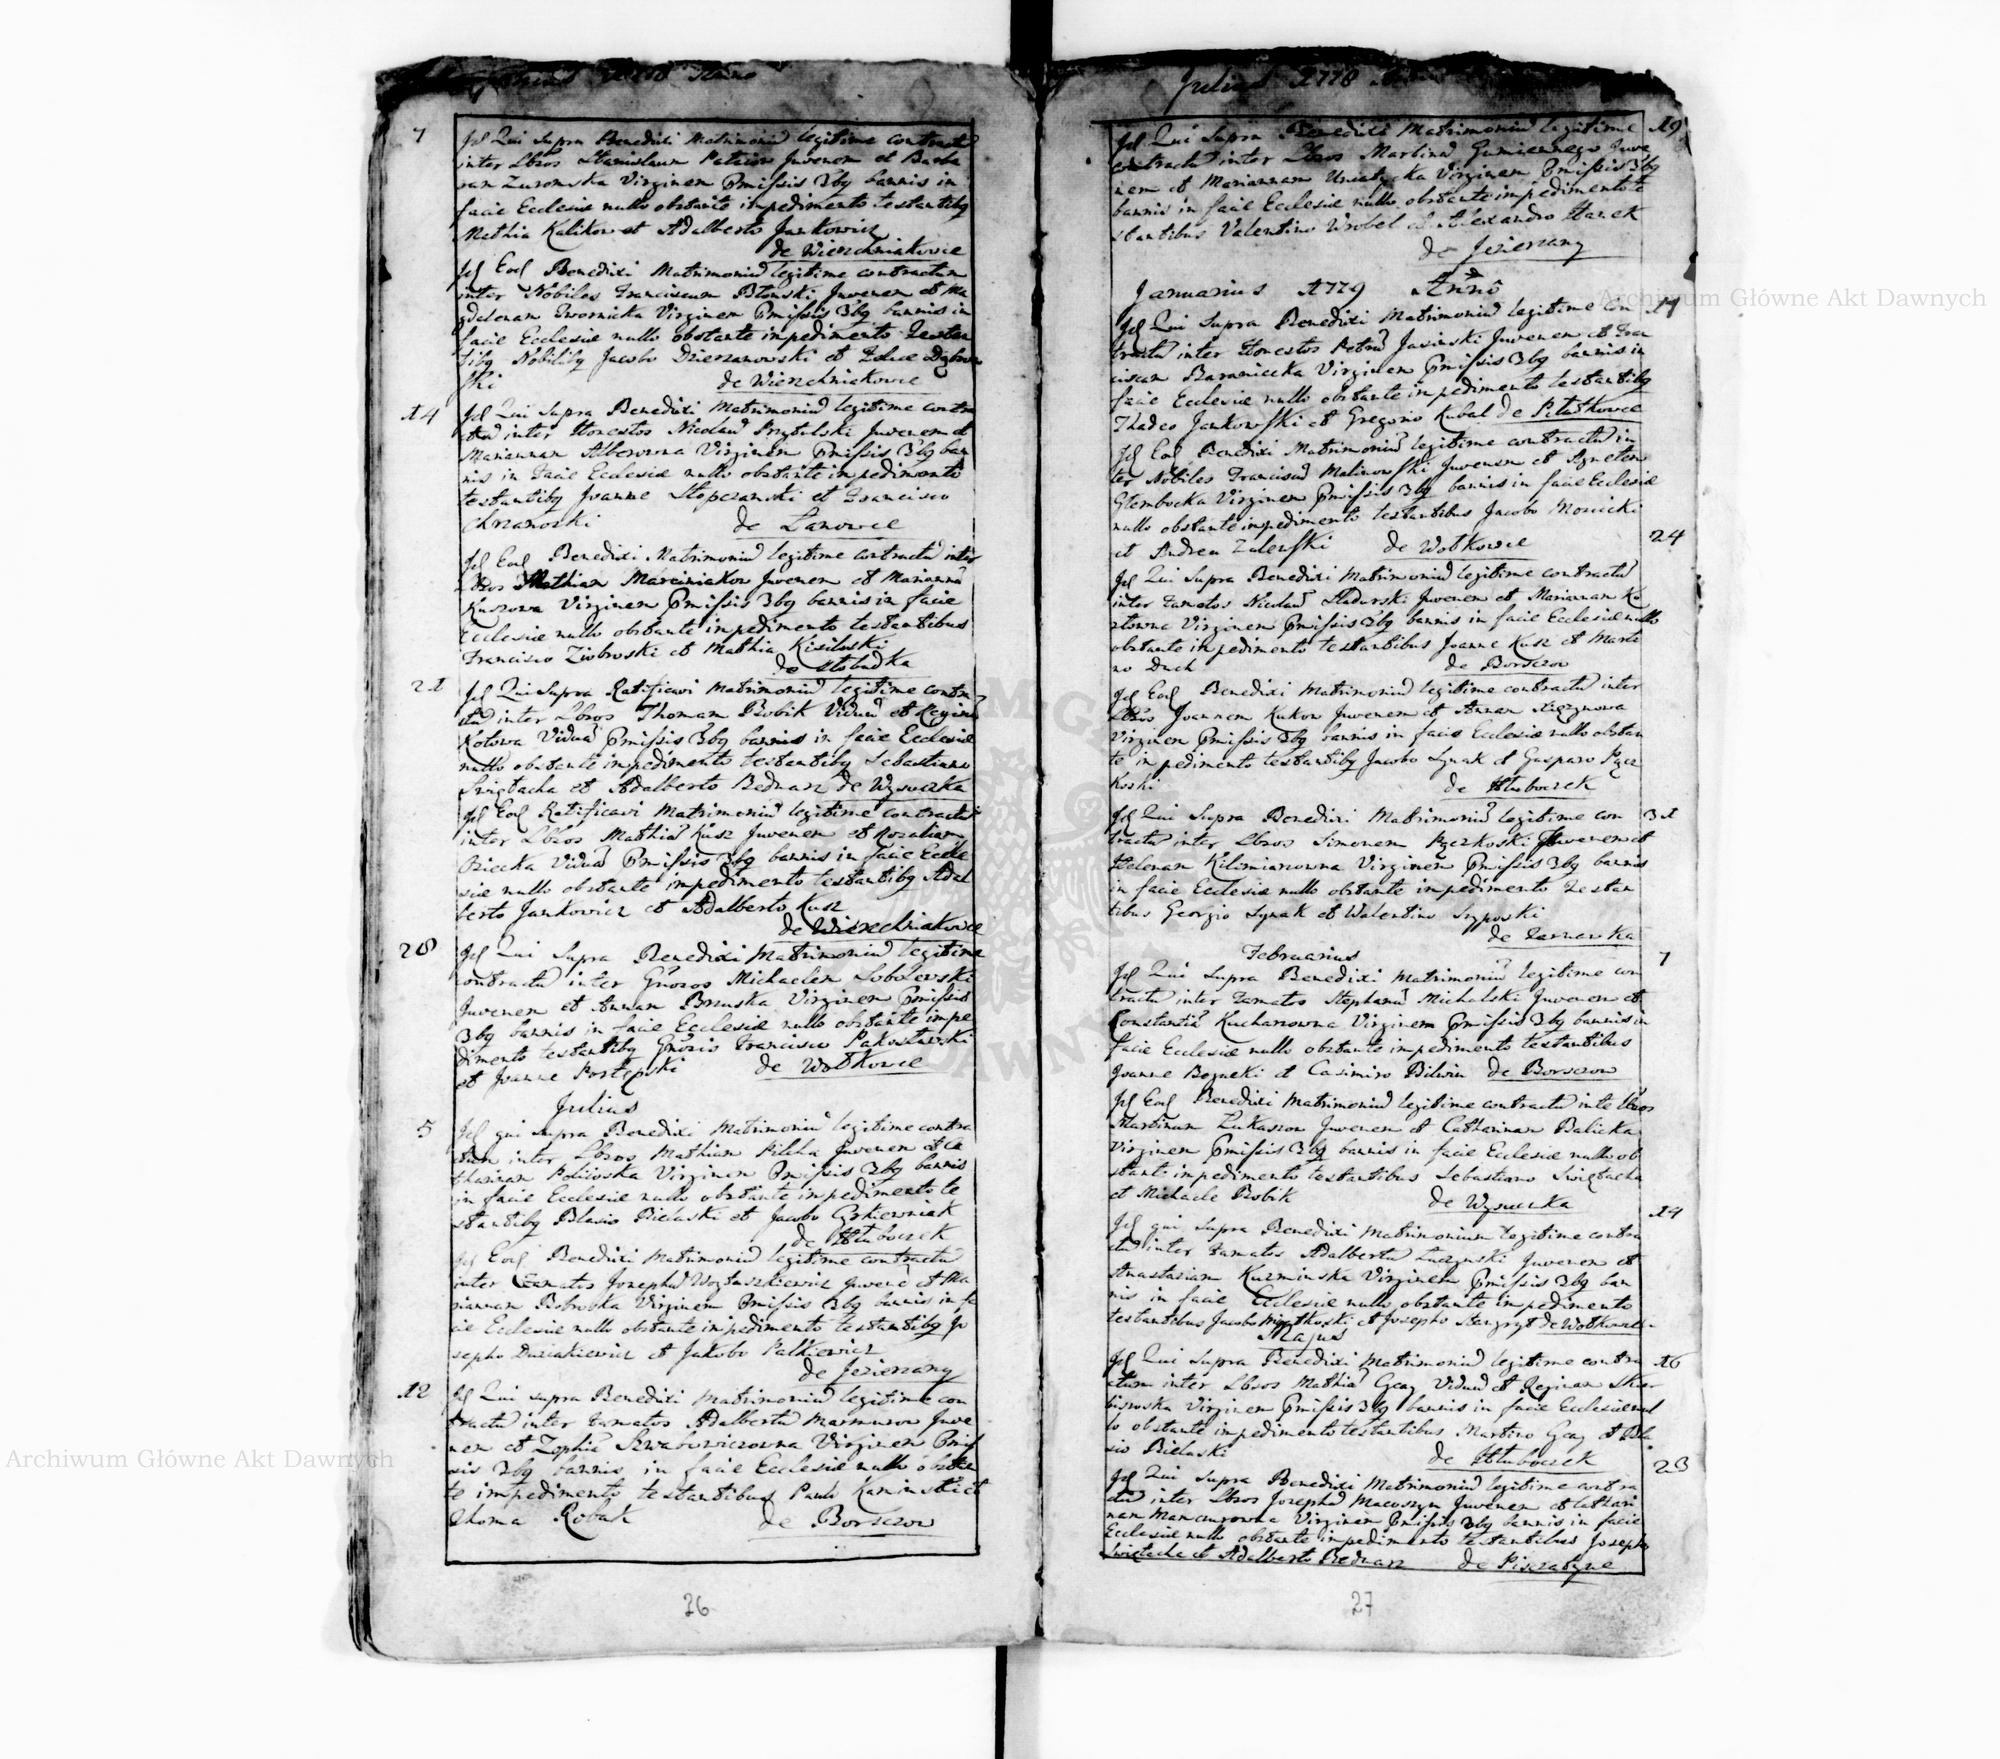 1778 Anno
7
Jd Qui Supra Benedixi Matrimoniu legitime contract
inter Lbros Stanislaum Juvenem et Barba
ram Zurowska Virginem Pmissis 3bq bannis in
facie Ecclesiæ nullo obstante impedimento testantibq
Mathia Kalikow et Adalberto Jankowicz
de Wierzchniakowce
Jd Eod Benedixi Matrimoniu legitime contractum
inter Nobiles Franciscum Blonski Juvenem et Ma
gdalenam Dwornicka Virginem Pmissis 3bq bannis in
facie Ecclesiæ nullo obstante impedimento Testan
tibq Nobilibq Jacobo Dzierzanowski et Luca Dąbrow
ski de Wierzchniakowce
14
Jd Qui Supra Benedixi Matrimoniu legitime contra
ctu inter Honestos Nicolau Przytulski Juvenem et
Mariannam Alberowna Virginem Pmissis 3bq ban
nis in Facie Ecclesiæ nullo obstante impedimento
testantibq Joanne Stopczanski et Francisco
Chrzanoski de Lanowce
Jd Eod Benedixi Matrimoniu legitime contractu inter
Lbros Mathiam Marciniakow Juvenem et Marianna
Kuszowa Virginem Pmissis 3bq bannis in facie
Ecclesiæ nullo obstante impedimento testantibus
Francisco Ziobroski et Mathia Kisiluski
de Slobudka
21
Jd Qui Supra Ratificavi Matrimoniu legitime contra
ctu inter Lbros Thomam Bobik Viduu et Regina
Kotowa Vidua Pmissis 3bq bannis in facie Ecclesiæ
nullo obstante impedimento testantibq Sebastiano
Swięтacha et Adalberto Bednarz de Wysuczka
Jd Eod Ratificavi Matrimoniu legitime contractu
inter Lbros Mathia Kusz Juvenem et Rozaliam
Vidua Pmissis 3bq bannis in facie Eccle
siæ nullo obstante impedimento testantibq Adal
berto Jankowicz et Adalberto Kusz
de Wierzchniakowce
28
Jd Qui Supra Benedixi Matrimoniu legitime
contractu inter Gnosos Michaelem Sobolewski
Juvenem et Annam Brzuska Virginem Pmissis
3bq bannis in facie Ecclesiæ nullo obstante impe
dimento testantibq Gnosis Francisco Pakoslawski
et Joanne Postępski de Wolkowce
Julius
5
Jd qui supra Benedixi Matrimoniu legitime contra
ctum inter Lbros Mathiam Pilcha Juvenem et Ca
tharinam Virginem Pmissis 3bq bannis
in facie Ecclesiæ nullo obstante impedimento te
stantibq Blasio Bielaski et Jacobo
de Hluboczek
Jd Eod Benedixi Matrimoniu legitime contractu
inter Famatos Josephu Woytaszkiewicz Juvene et Ma
riannam Virginem Pmissis 3bq bannis in fa
cie Ecclesiæ nullo obstante impedimento testantibq Jo
sepho et Jakobo Palkiewicz
de Jezierzany
12
Jd Qui supra Benedixi Matrimoniu legitime con
tractu inter Famatos Adalbertu Marmurow Juve
nem et Zophia Szwabowiczowna Virginem Pmis
sis 3bq bannis in facie Ecclesiæ nullo obstan
te impedimento testantibus Paulo Kaminski et
Thoma Robak de Borszczow
26
Julius 1778
19
Jd Qui Supra Benedixi Matrimoniu legitime
contractu inter Lbros Martinu Gumiennego Juve
nem et Mariannam Virginem Pmissis 3bq
bannis in facie Ecclesiæ nullo obstante impedimento te
stantibus Valentino Wrobel et Alexandro Stasek
de Jezierzany
Januarius 1779 Anno
17
Jd Qui Supra Benedixi Matrimoniu legitime con
tractu inter Honestos Petru Jasinski Juvenem et Fran
ciscam Baraniecka Virginem Pmissis 3bq bannis in
facie Ecclesiæ nullo obstante impedimento testantibq
Thadeo Jankowski et Gregorio Kubal de Pilatkowce
Jd Eod Benedixi Matrimoniu legitime contractu in
ter Nobiles Franciscu Malinowski Juvenem et Agnetem
Glembocka Virginem Pmissis 3bq bannis in facie Ecclesiæ
nullo obstante impedimento testantibus Jacobo Mosicicki
et Andrea Zalewski de Wolkowce
24
Jd Qui Supra Benedixi Matrimoniu legitime contractu
inter Famatos Nicolau Sladurski Juvenem et Mariannam Ko
zlowna Virginem Pmissis 3bq bannis in facie Ecclesiæ nullo
obstante impedimento testantibus Joanne Kusz et Marti
no Duch de Borszczow
Jd Eod Benedixi Matrimoniu legitime contractu inter
Lbros Joannem Kukow Juvenem et Annam
Virginem Pmissis 3bq bannis in facie Ecclesiæ nullo obstan
te impedimento testantibq Jacobo Synak et Gasparo Pącz
koski de Hluboczek
31
Jd Qui Supra Benedixi Matrimoniu legitime con
tractu inter Lbros Simonem Pączkoski Juvenem et
Helenam Kilimianowna Virginem Pmissis 3bq bannis
in facie Ecclesiæ nullo obstante impedimento Testan
tibus Georgio Synak et Walentino Szyposki
de Tarnawka
Februarius
7
Jd Qui Supra Benedixi Matrimoniu legitime con
tractu inter Famatos Stephanu Michalski Juvenem et
Constantia Kucharzowna Virginem Pmissis 3bq bannis in
facie Ecclesiæ nullo obstante impedimento testantibus
Joanne Bogucki et Casimiro Bilwin de Borszczow
Jd Eod Benedixi Matrimoniu legitime contractu inte Lbros
Martinum Lukaszow Juvenem et Catharinam Balicka
Virginem Pmissis 3bq bannis in facie Ecclesiæ nullo ob
stante impedimento testantibus Sebastiano Swiętacha
et Michaele Bobik de Wysuczka
14
Jd qui supra Benedixi Matrimonium legitime contra
ctu inter Famatos Adalbertu Luczynski Juvenem et
Anastasiam Kuzminska Virginem Pmissis 3bq ban
nis in facie Ecclesiæ nullo obstante impedimento
testantibus Jacobo et Josepho de Wolkowce
Majus
16
Jd Qui Supra Benedixi Matrimoniu legitime contra
ctum inter Lbros Mathia Gcay Viduu et Reginam Skor
Virginem Pmissis 3bq bannis in facie Ecclesiæ nul
lo obstante impedimento testantibus Martino Gcay et Bla
sio Bielaski de Hluboczek
23
Jd Qui Supra Benedixi Matrimoniu legitime contra
ctu inter Lbros Josephu Macoszyn Juvenem et Cathari
nam Mancurowna Virginem Pmissis 3bq bannis in facie
Ecclesiæ nullo obstante impedimento testantibus Josepho
Swiętacha et Adalberto Bednarz de Piszczatynce
27
Archiwum Główne Akt Dawnych
Archiwum Główne Akt Dawnych